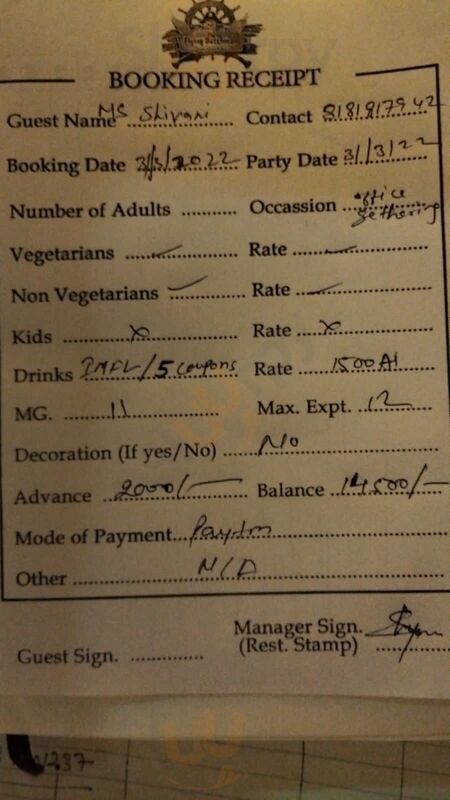 Flying Dutchman
BOOKING RECEIPT
Guest Name Ms Shivani Contact 8181817942
Booking Date 3/3/2022 Party Date 31/3/22
Number of Adults .......... Occassion office gethering
Vegetarians ✓ Rate
Non Vegetarians ✓ Rate
Kids x Rate x
Drinks IMFL/5 coupons Rate 1500 AI
MG. 11 Max. Expt. 12
Decoration (If yes/No) No
Advance 2000/- Balance 14500/-
Mode of Payment... Paytm
Other N/A
Manager Sign.
Guest Sign. ............. (Rest. Stamp)